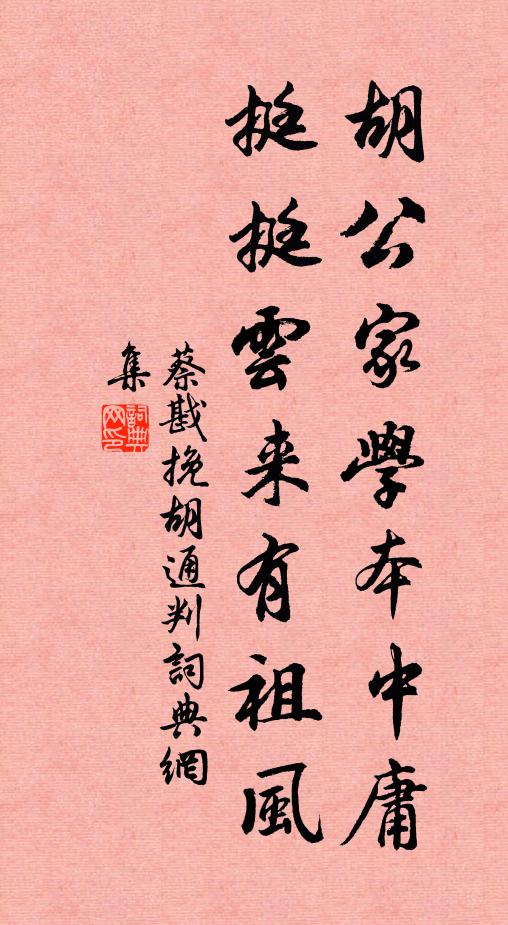 胡公家學本中庸
挺挺雲来有祖風
蔡戡挽胡通判詞典網
集
詞典網印